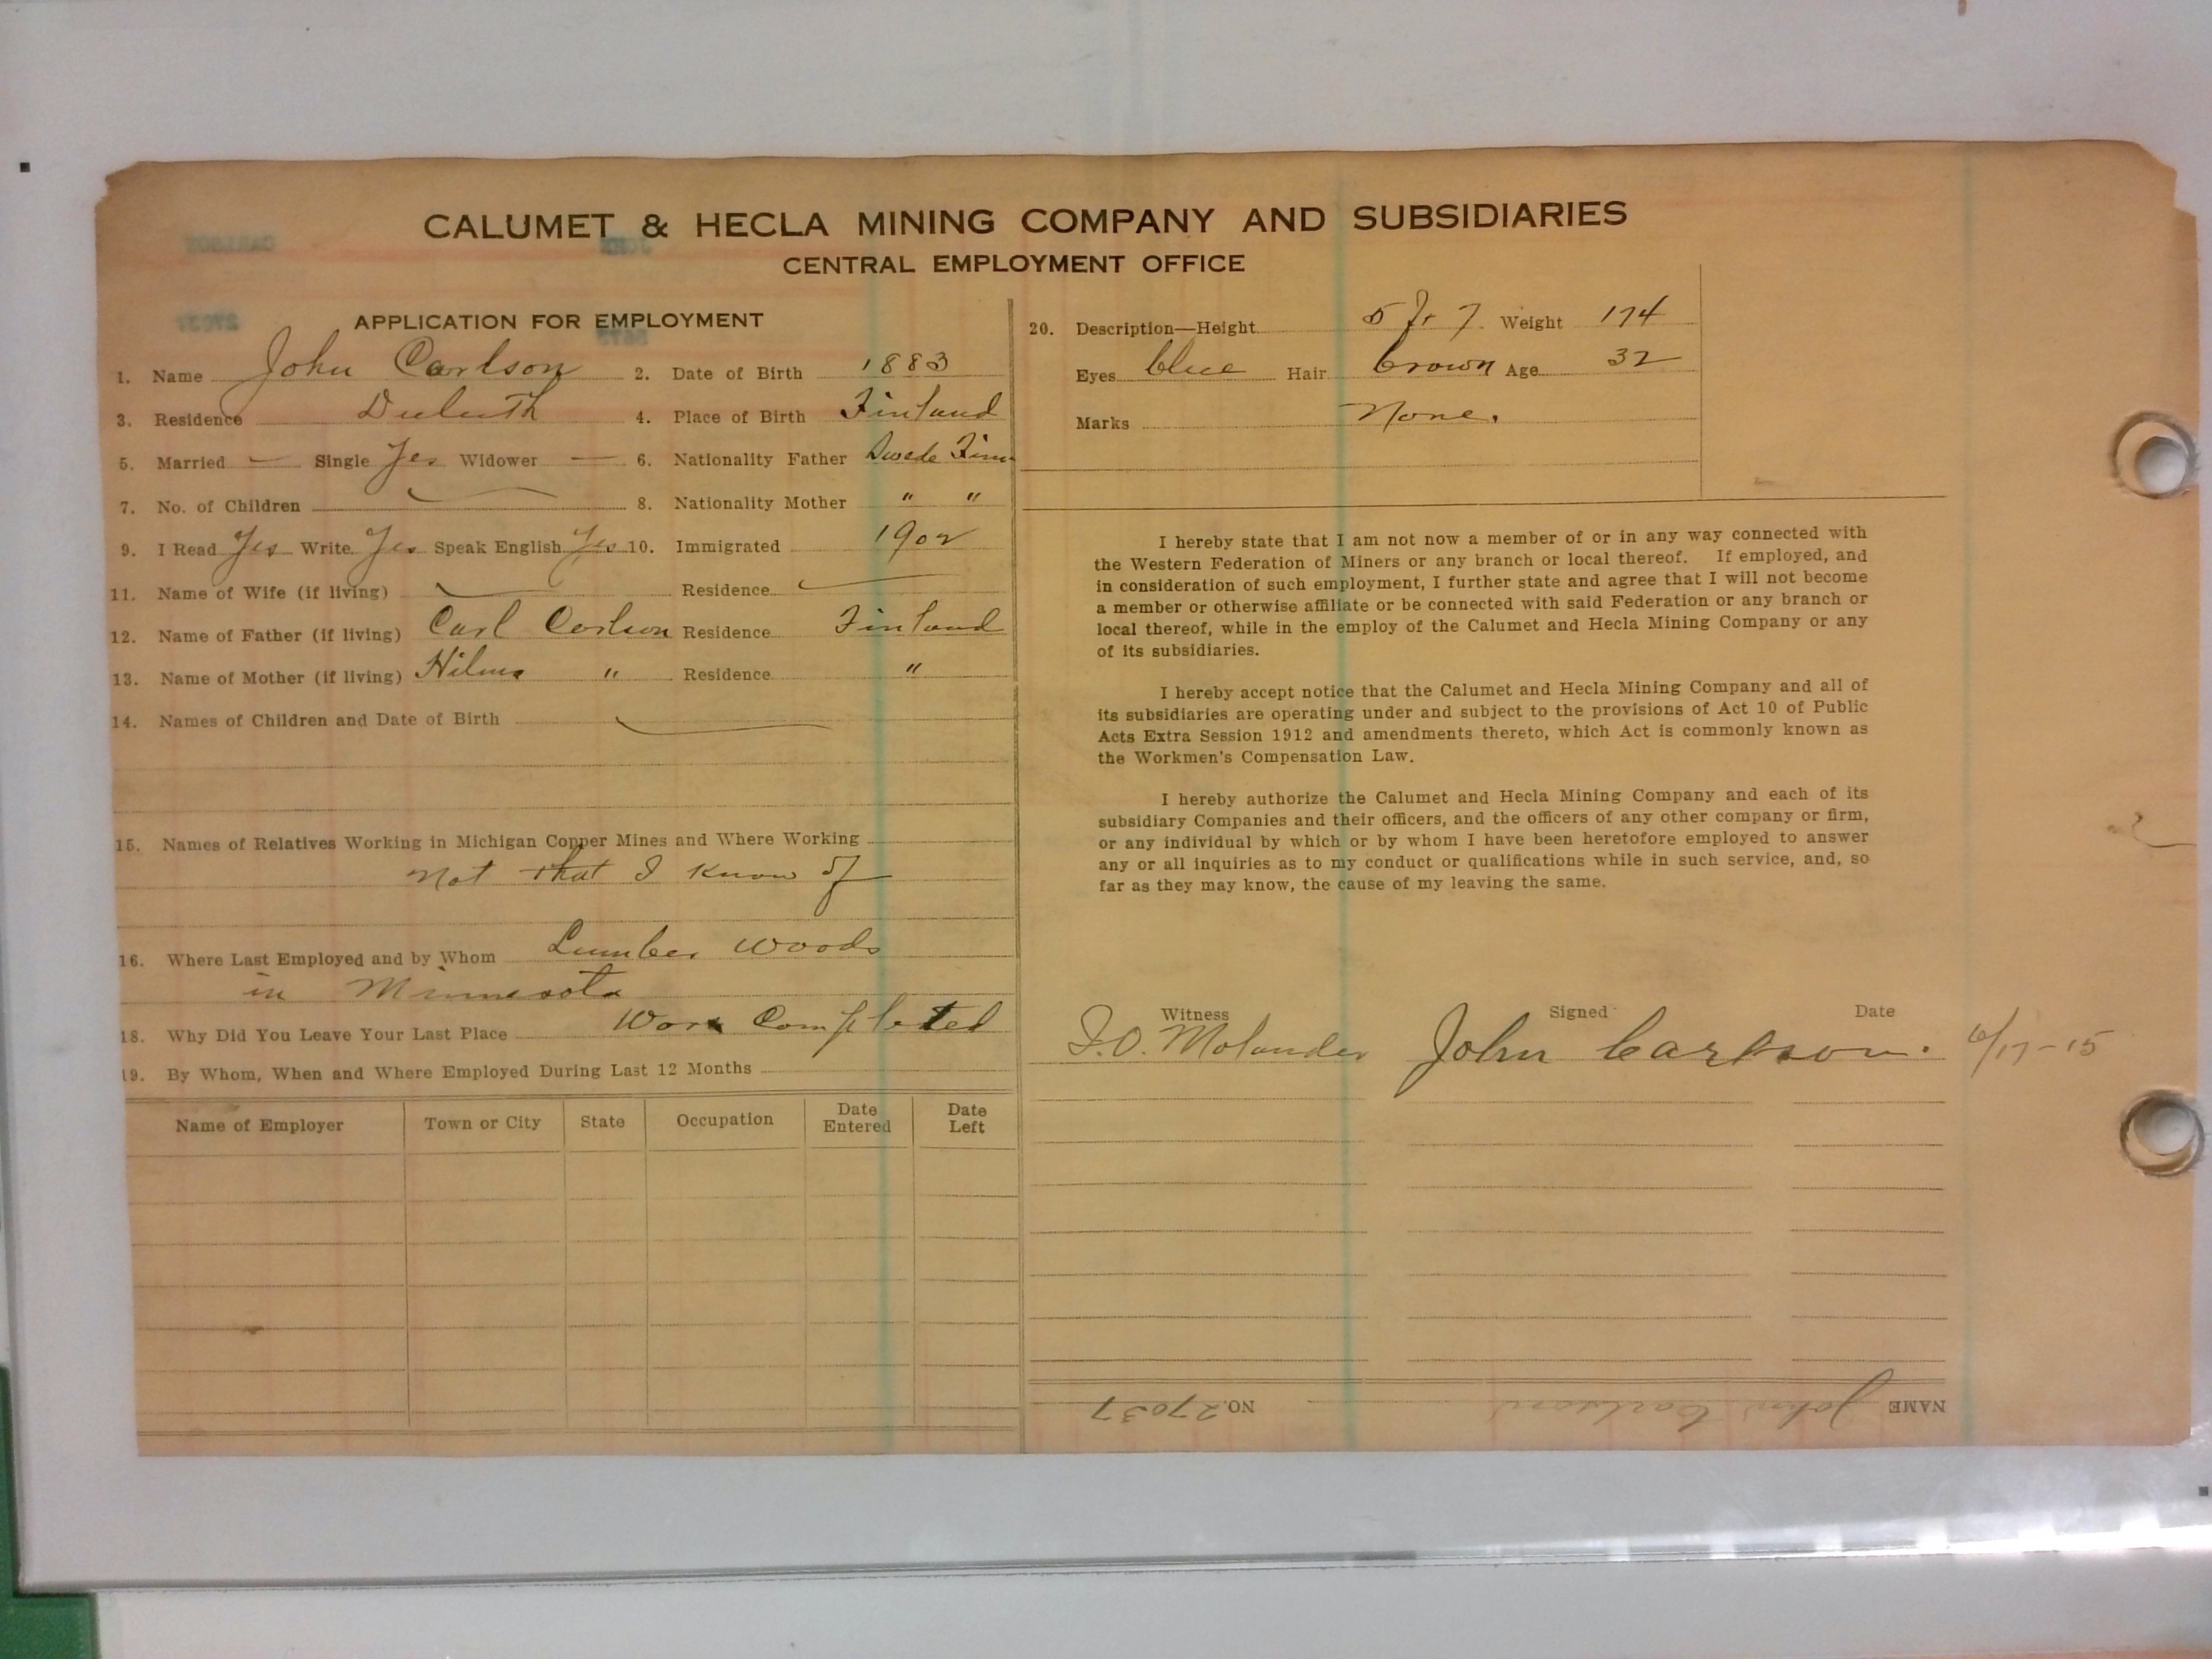 CALUMET & HECLA MINING COMPANY AND SUBSIDIARIES
CENTRAL EMPLOYMENT OFFICE
APPLICATION FOR EMPLOYMENT
1. Name John Carlson 2. Date of Birth 1883
3. Residence Duluth 4. Place of Birth Finland
5. Married — Single Yes Widower — 6. Nationality Father Swede Finn
7. No. of Children 8. Nationality Mother " "
9. I Read Yes Write Yes Speak English Yes 10. Immigrated 1902
11. Name of Wife (if living) Residence
12. Name of Father (if living) Carl Carlson Residence Finland
13. Name of Mother (if living) Hilma " Residence "
14. Names of Children and Date of Birth
15. Names of Relatives Working in Michigan Copper Mines and Where Working
Not that I know of
16. Where Last Employed and by Whom Lumber woods
in Minnesota
18. Why Did You Leave Your Last Place Work Completed
19. By Whom, When and Where Employed During Last 12 Months
Name of Employer Town or City State Occupation Date Entered Date Left
20. Description—Height 5 ft 7 Weight 174
Eyes blue Hair brown Age 32
Marks None.
I hereby state that I am not now a member of or in any way connected with
the Western Federation of Miners or any branch or local thereof. If employed, and
in consideration of such employment, I further state and agree that I will not become
a member or otherwise affiliate or be connected with said Federation or any branch or
local thereof, while in the employ of the Calumet and Hecla Mining Company or any
of its subsidiaries.
I hereby accept notice that the Calumet and Hecla Mining Company and all of
its subsidiaries are operating under and subject to the provisions of Act 10 of Public
Acts Extra Session 1912 and amendments thereto, which Act is commonly known as
the Workmen's Compensation Law.
I hereby authorize the Calumet and Hecla Mining Company and each of its
subsidiary Companies and their officers, and the officers of any other company or firm,
or any individual by which or by whom I have been heretofore employed to answer
any or all inquiries as to my conduct or qualifications while in such service, and, so
far as they may know, the cause of my leaving the same.
Witness Signed Date
F.O. Molander John Carlson. 6/17-15
NAME John Carlson NO. 27037